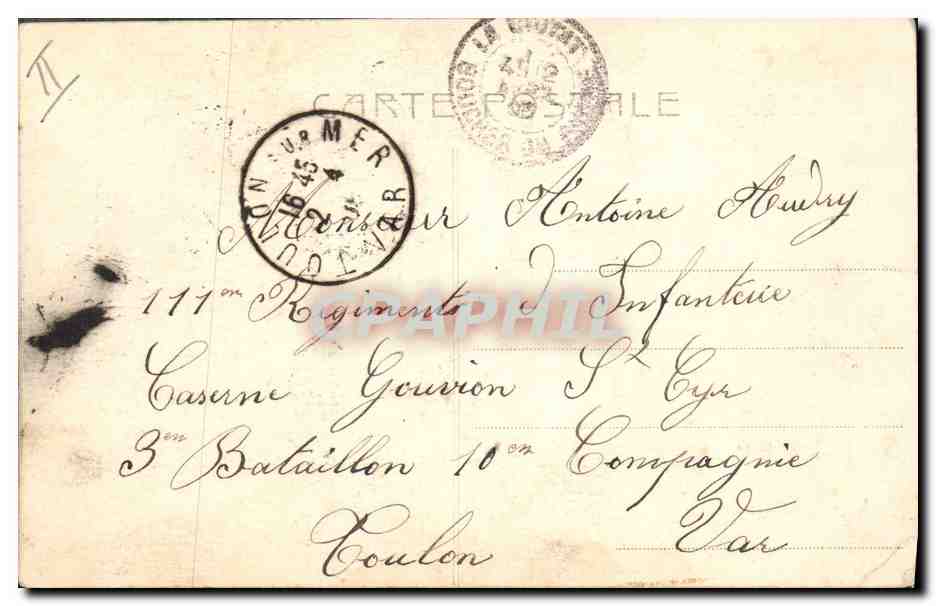 II
LA CIOTAT
CARTE POSTALE
TOULON SUR MER
16 45
2 4
VAR
Monsieur Antoine Audry
111em Regiments d Infanterie
CPAPHIL
Caserne Gouvion St Cyr
3em Bataillon 10em Compagnie
Toulon Var